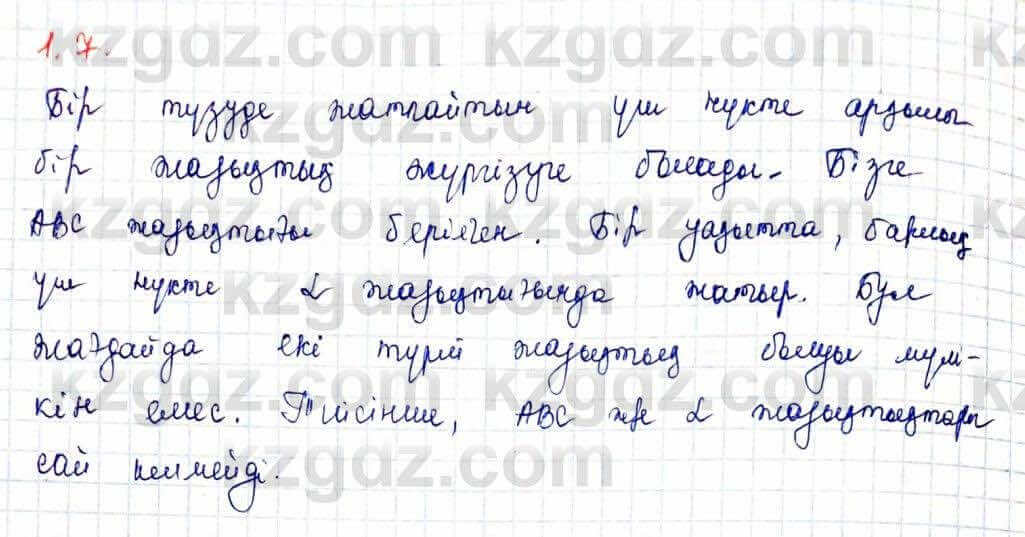 1.7.
Бір түзуде жатпайтын үш нүкте арқылы
бір жазықтық жүргізуге болады. Бізге
АВС жазықтығы берілген. Бір уақытта, барлық
үш нүкте α жазықтығында жатыр. Бұл
жағдайда екі түрлі жазықтық болуы мүм-
кін емес. Тиісінше, АВС және α жазықтықтары
сай келмейді.
kzgdz.com